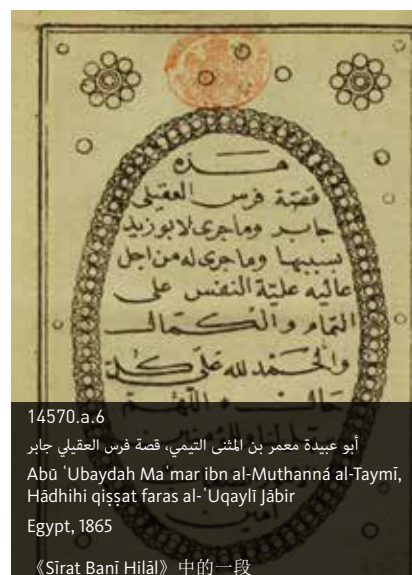 هذه
قصة فرس العقيلي
جابر وماجرى لابوزيد
بسببها وماجرى له من اجل
عاليه علية النفس على
التمام والكمال
والحمد لله على كل
حال اللهم
امين
14570.a.6
أبو عبيدة معمر بن المثنى التيمي، قصة فرس العقيلي جابر
Abū ʻUbaydah Maʻmar ibn al-Muthanná al-Taymī,
Hādhihi qiṣṣat faras al-ʻUqaylī Jābir
Egypt, 1865
《Sīrat Banī Hilāl》中的一段